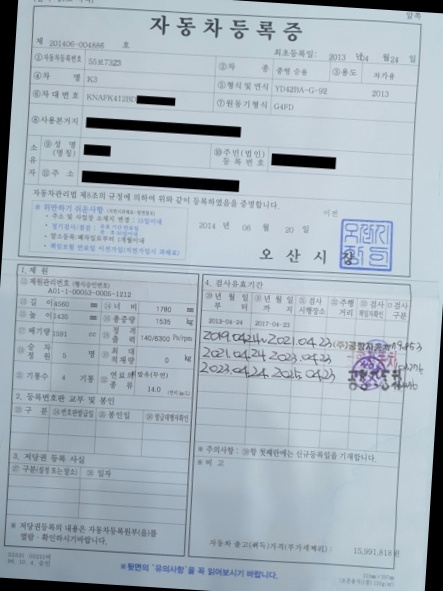 앞쪽
자동차등록증
제 201406-004886 호
최초등록일: 2013 년 04 월 24 일
①자동차등록번호 55보7323 ②차 종 중형 승용 ③용도 자가용
④차 명 K3 ⑤형식 및 연식 YD42BA-G-92 2013
⑥차대번호 KNAFK412BD ⑦원동기형식 G4FD
⑧사용본거지
소유자 ⑨성명(명칭) ⑩주민(법인)등록번호
⑪주소
자동차관리법 제8조의 규정에 의하여 위와 같이 등록하였음을 증명합니다.
※위반하기 쉬운사항
이전
2014 년 06 월 20 일
오산시장
1. 제 원
⑫제원관리번호 (형식승인번호)
A01-1-00053-0005-1212
⑬길이 4560 mm ⑭너비 1780 mm
⑮높이 1435 mm ⑯총중량 1535 kg
⑰배기량 1591 cc ⑱정격출력 140/6300 Ps/rpm
⑲승차정원 5 명 ⑳최대적재량 0 kg
기통수 4 기통 연료의 종류 휘발유(무연) 14.0
2. 등록번호판 교부 및 봉인
구 분 번호판발급일 봉인일 발급대행자확인
3. 저당권 등록 사실
구분(설정 또는 말소) 일자
※ 저당권등록의 내용은 자동차등록원부(을)를
열람ㆍ확인하시기바랍니다.
4. 검사유효기간
년 월 일 부터 년 월 일 까지 검사시행장소 주행거리 검사책임자확인 검사구분
2013-04-24 2017-04-23
2019.04.24 ~ 2021.04.23
2021.04.24 2023.04.23
2023.04.24 2025.04.23
※ 주의사항 : 항 첫째란에는 신규등록일을 기재합니다.
※ 비 고
자동차 출고(취득)가격(부가세제외) : 15,991,818 원
※뒷면의 "유의사항"을 꼭 읽어보시기 바랍니다.